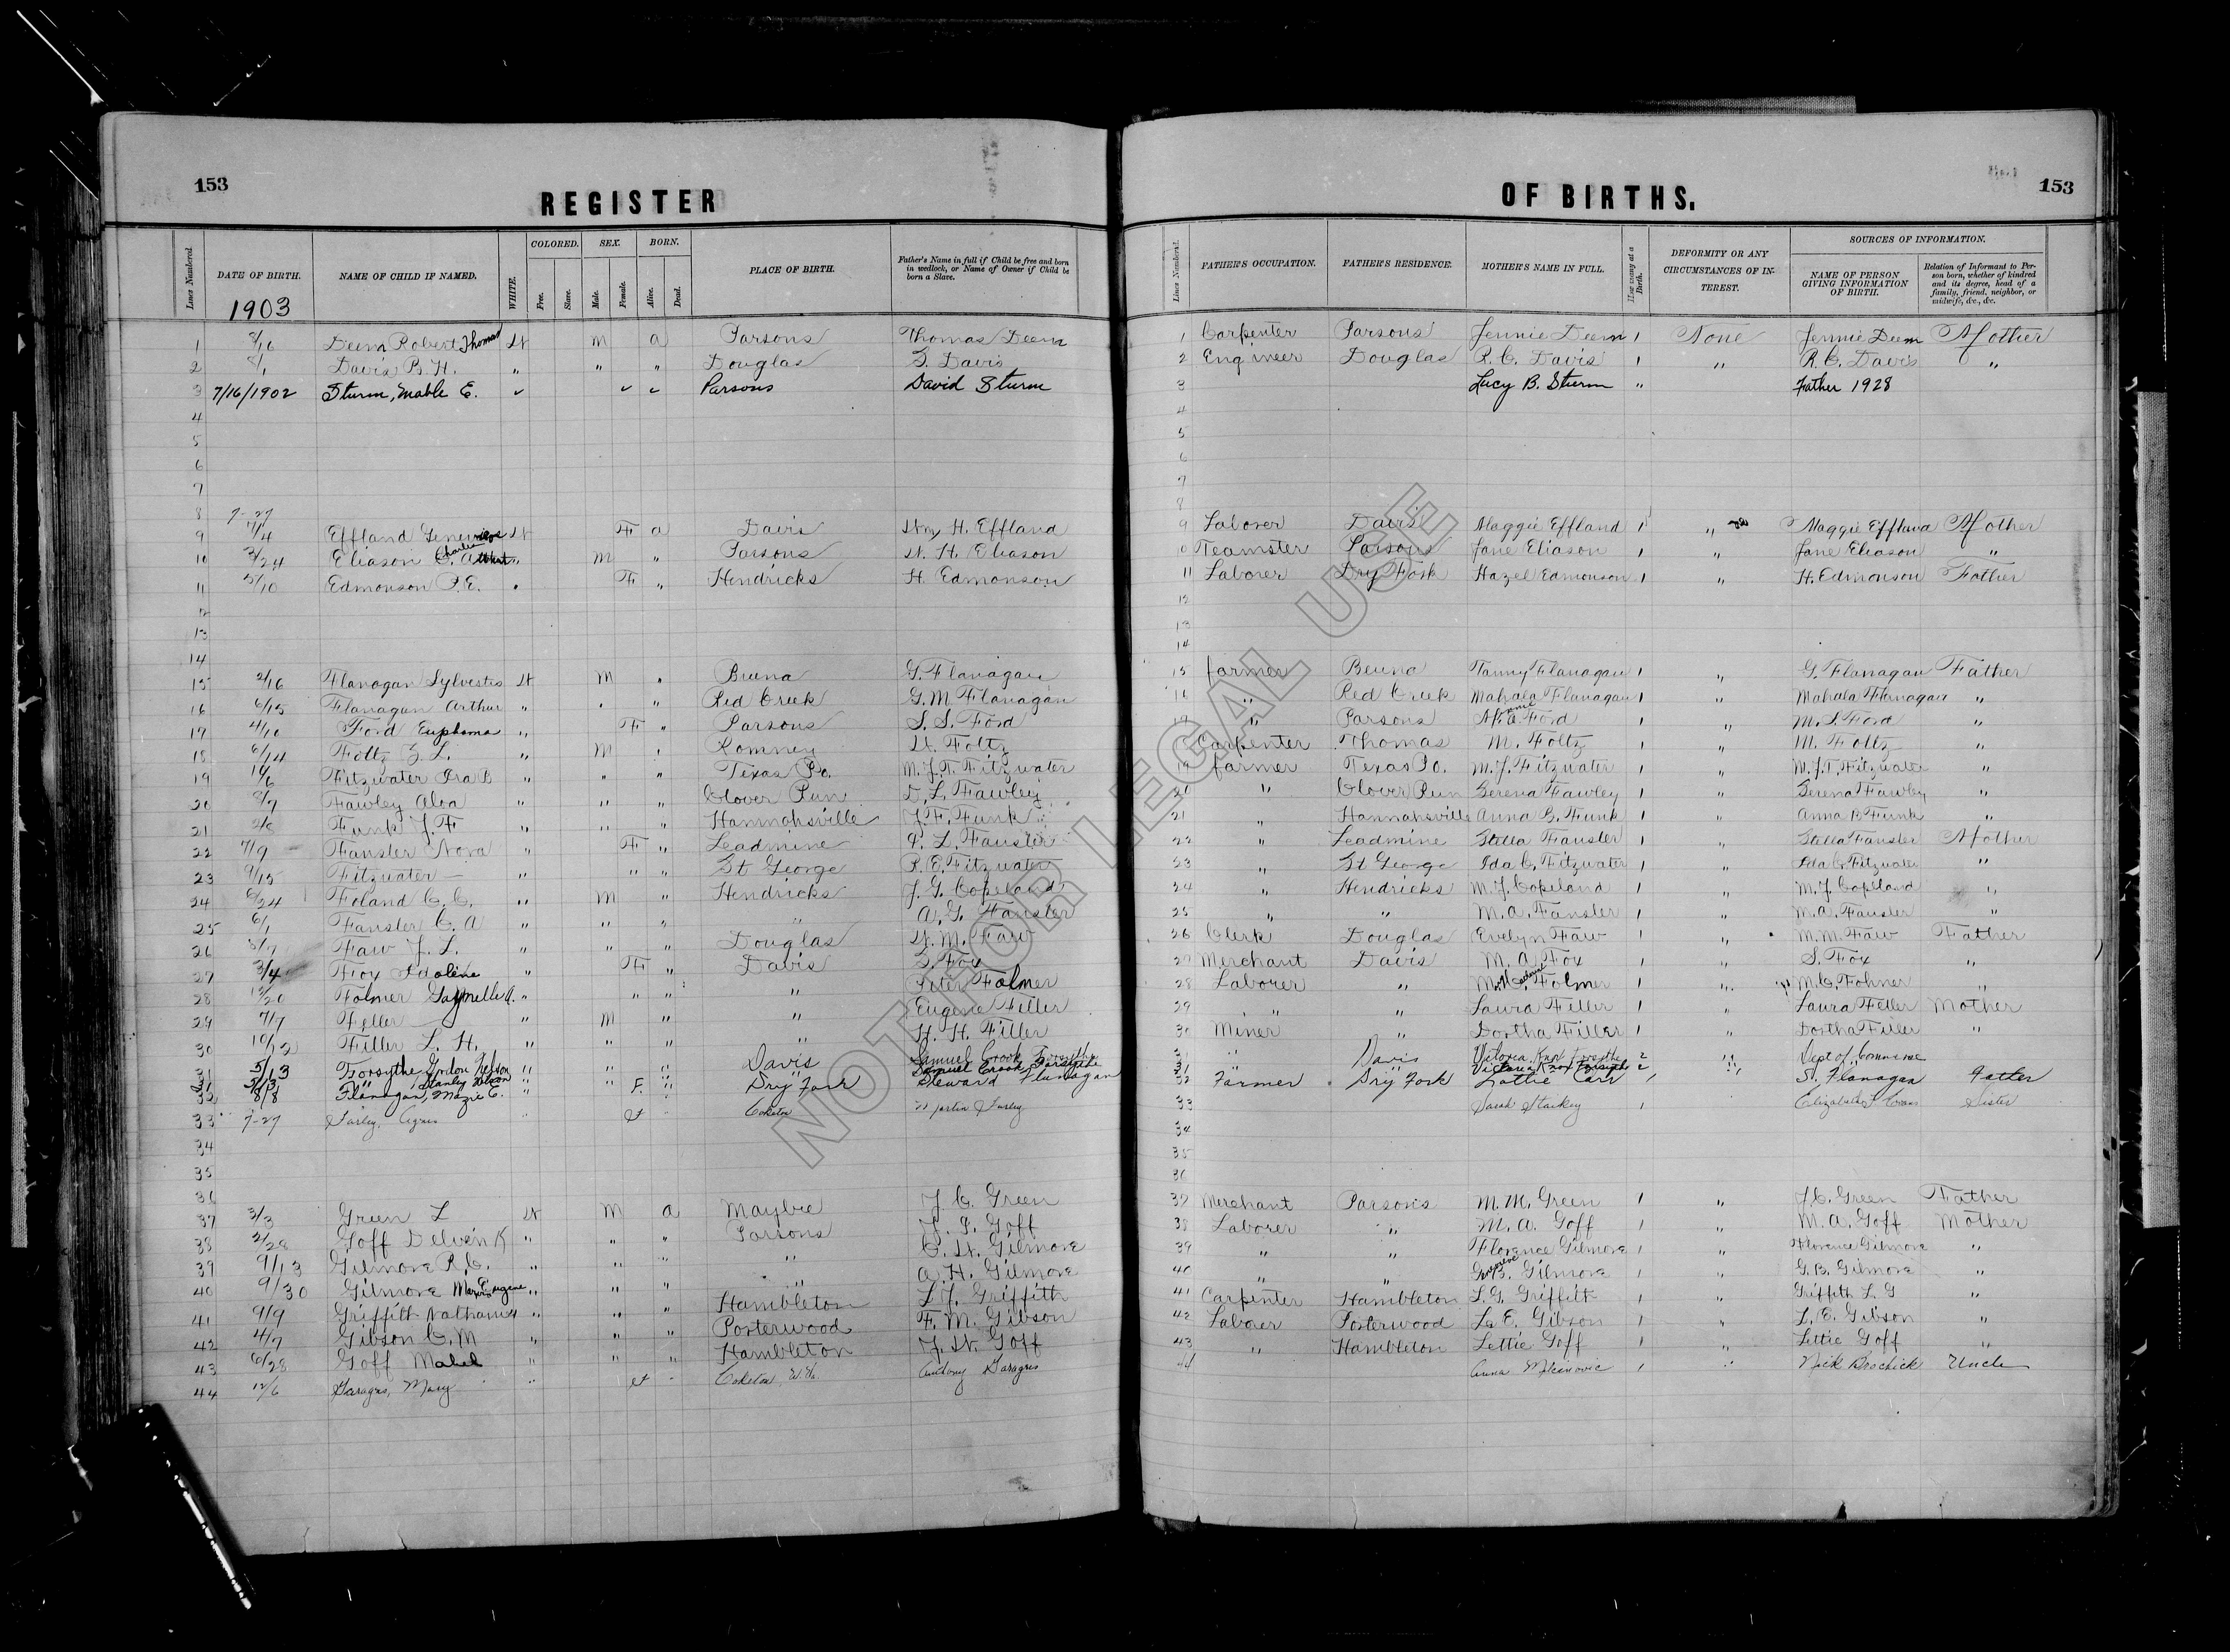 153
REGISTER
Lines Numbered.
DATE OF BIRTH.
1903
NAME OF CHILD IF NAMED.
WHITE.
COLORED.
Free.
Slave.
SEX.
Male.
Female.
BORN.
Alive.
Dead.
PLACE OF BIRTH.
Father's Name in full if Child be free and born in wedlock, or Name of Owner if Child be born a Slave.
1 Deem Robert Thomas W M a Parsons Thomas Deem
2 Davis B. H. " " " Douglas S. Davis
3 7/16/1902 Sturm, Mable E. Parsons David Sturm
4
5
6
7
8
9 Effland Genevieve W F a Davis Wm H. Effland
10 3/24 Eliason C. Charlie Albert " M " Parsons W. H. Eliason
11 5/10 Edmonson P. E. F " Hendricks H. Edmonson
12
13
14
15 2/16 Flanagan Sylvestes W M " Bruna G. Flanagan
16 6/15 Flanagan Arthur " " " Red Creek G. M Flanagan
17 4/10 Ford Euphama " F " Parsons S. S. Ford
18 6/14 Foltz Z. L. " M " Romney W. Foltz
19 Fitzwater Ira B " " " Texas Po. M. J. T. Fitzwater
20 8/7 Fawley Alva " " " Clover Run D. L. Fawley
21 2/8 Funk J. F " " " Hannahsville J. F. Funk
22 7/9 Fansler Nora " F " Leadmine P. L. Fansler
23 9/15 Fitzwater " " " St George P. E. Fitzwater
24 6/24 Foland C. C. " M " Hendricks J. G. Copeland
25 6/1 Fansler C. A " " " " A. G. Fansler
26 8/7 Faw J. L. " " " Douglas W. M. Faw
27 3/4 Fox Idolene " F " Davis S. Fox
28 12/20 Folmer A. " " " " Peter Folmer
29 7/7 Feller " M " " Eugene Feller
30 10/12 Filler L. H. " " " " H. H. Filler
31 5/13 Forsythe Gordon Nelson " " " Davis Samuel Crook Forsythe
31 5/13 " Stanley Wilson " " " " Samuel Crook Forsythe
32 8/8 Flanagan, Mazie E. " F. " Dry Fork Steward Flanagan
33 7-27 Farley, Agnes " F Coketon Martin Farley
34
35
36
37 3/3 Green L W M a Maybie J. C. Green
38 2/28 Goff Delvin K " " " Parsons J. P. Goff
39 9/13 Gilmore R. C. " " " " C. W. Gilmore
40 9/30 Gilmore Eugene " " " " A. H. Gilmore
41 9/9 Griffith Nathan " " " Hambleton L. J. Griffith
42 4/7 Gibson C. M " " " Porterwood F. M. Gibson
43 6/28 Goff Mabel " " " Hambleton J. W. Goff
44 12/6 Garagus, Mary " F " Coketon, W. Va. Anthony Garagus
OF BIRTHS.
153
Lines Numbered.
FATHER'S OCCUPATION.
FATHER'S RESIDENCE.
MOTHER'S NAME IN FULL.
How many at a Birth.
DEFORMITY OR ANY CIRCUMSTANCES OF INTEREST.
SOURCES OF INFORMATION.
NAME OF PERSON GIVING INFORMATION OF BIRTH.
Relation of Informant to Person born, whether of kindred and its degree, head of a family, friend, neighbor, or midwife, &c., &c.
1 Carpenter Parsons Jennie Deem 1 None Jennie Deem Mother
2 Engineer Douglas R. C. Davis 1 " R. C. Davis "
3 Lucy B. Sturm " Father 1928
4
5
6
7
8
9 Laborer Davis Maggie Effland 1 " Maggie Effland Mother
10 Teamster Parsons Jane Eliason 1 " Jane Eliason "
11 Laborer Dry Fork Hazel Edmonson 1 " H. Edmonson Father
12
13
14
15 farmer Beuna Tanny Flanagan 1 " G. Flanagan Father
16 " Red Creek Mahala Flanagan 1 " Mahala Flanagan "
17 " Parsons Ford 1 " M. S. Ford "
18 Carpenter Thomas M. Foltz 1 " M. Foltz "
19 farmer Texas Po. M. J. Fitzwater 1 " M. J. T. Fitzwater "
20 " Clover Run Serena Fawley 1 " Serena Fawley "
21 " Hannahsville Anna B. Funk 1 " Anna B Funk "
22 " Leadmine Stella Fansler 1 " Stella Fansler Mother
23 " St George Ida C. Fitzwater 1 " Ida C. Fitzwater "
24 " Hendricks M. J. Copeland 1 " M. J. Copeland "
25 " " M. A. Fansler 1 " M. A. Fansler "
26 Clerk Douglas Evelyn Faw 1 " M. M. Faw Father
27 Merchant Davis M. A. Fox 1 " S. Fox "
28 Laborer " Folmer 1 " M. C. Folmer "
29 " " Laura Feller 1 " Laura Feller Mother
30 Miner " Dortha Filler 1 " Dortha Filler "
31 " Davis Victoria Knox Forsythe 2 " Dept of Commerce
31 " Victoria Knox Forsythe 2 " "
32 Farmer Dry Fork Lottie Carr 1 " S. Flanagan Father
33 Sarah Stuckey 1 Elizabeth F Evans Sister
34
35
36
37 Merchant Parsons M. M. Green 1 " J. C. Green Father
38 Laborer " M. A. Goff 1 " M. A. Goff Mother
39 " " Florence Gilmore 1 " Florence Gilmore "
40 " " G. B. Gilmore 1 " G. B. Gilmore "
41 Carpenter Hambleton L. G. Griffith 1 " Griffith L. G "
42 Laborer Porterwood L. E. Gibson 1 " L. E. Gibson "
43 " Hambleton Lettie Goff 1 " Lettie Goff "
44 Anna Milcinovic 1 " Nick Brochick Uncle
NOT FOR LEGAL USE